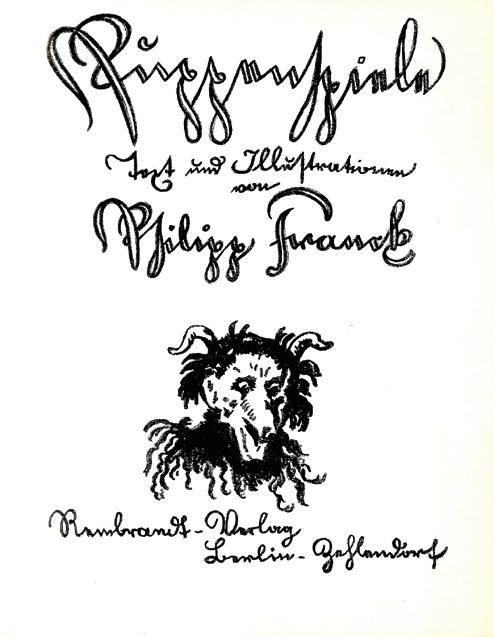 Puppenspiele
Text und Illustrationen
von
Philipp Franck
Rembrandt-Verlag
Berlin-Zehlendorf